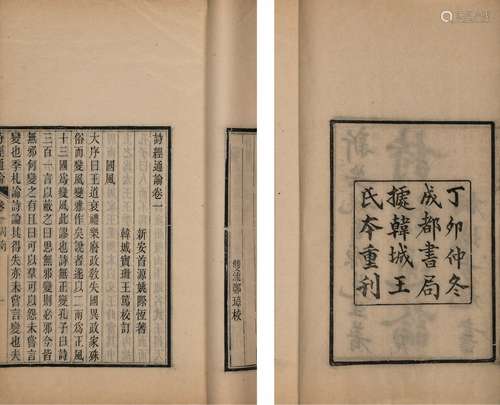 丁卯仲冬
成都書局
據韓城王
氏本重刊
雙流鄭璋校
詩經通論卷一
新安首源姚際恆著
韓城寶珊王篤校訂
國風
大序曰王道衰禮樂廢政教失國異政家殊
俗而變風變雅作矣說者遂以二南為正風
十三國為變風此謬也詩無正變孔子曰詩
三百一言以蔽之曰思無邪變則必邪今皆
無邪何變之有且曰可以羣可以怨未嘗言
變也季札論詩論其得失亦未嘗言變也夫
詩經通論
卷一